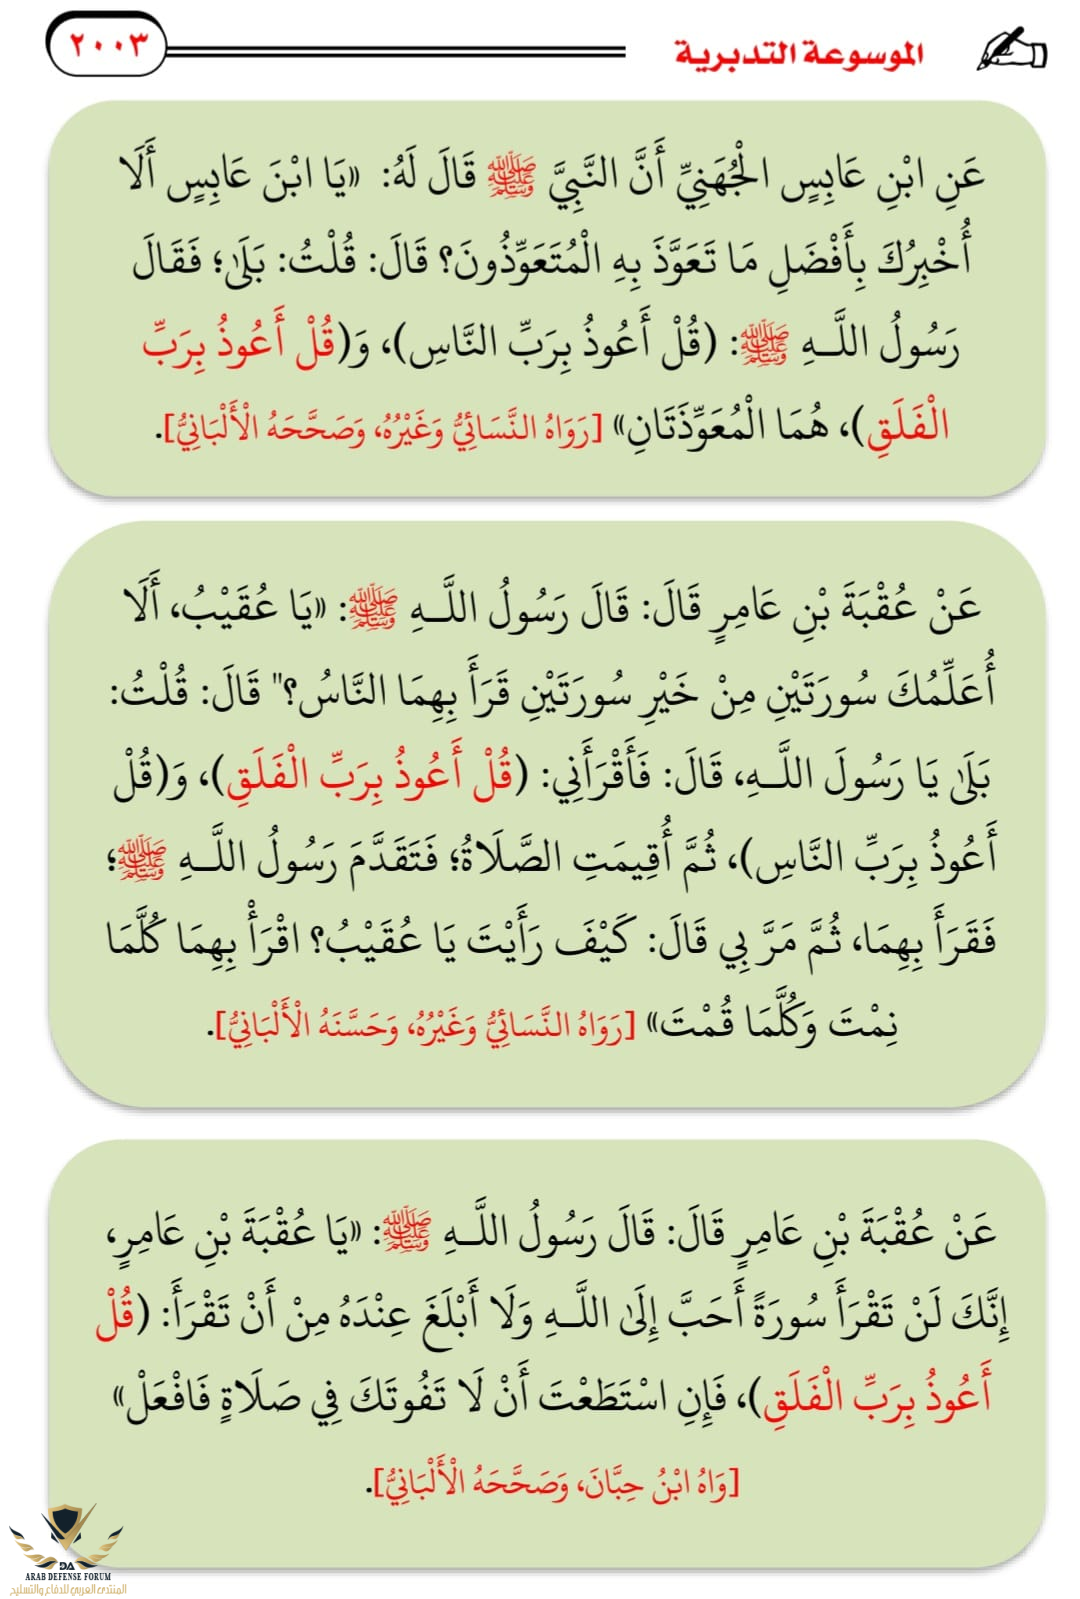 الموسوعة التدبرية
٢٠٠٣
عَنِ ابْنِ عَابِسٍ الْجُهَنِيِّ أَنَّ النَّبِيَّ ﷺ قَالَ لَهُ: «يَا ابْنَ عَابِسٍ أَلَا
أُخْبِرُكَ بِأَفْضَلِ مَا تَعَوَّذَ بِهِ الْمُتَعَوِّذُونَ؟ قَالَ: قُلْتُ: بَلَىٰ؛ فَقَالَ
رَسُولُ اللَّـهِ ﷺ: (قُلْ أَعُوذُ بِرَبِّ النَّاسِ)، وَ(قُلْ أَعُوذُ بِرَبِّ
الْفَلَقِ)، هُمَا الْمُعَوِّذَتَانِ» [رَوَاهُ النَّسَائِيُّ وَغَيْرُهُ، وَصَحَّحَهُ الْأَلْبَانِيُّ].
عَنْ عُقْبَةَ بْنِ عَامِرٍ قَالَ: قَالَ رَسُولُ اللَّـهِ ﷺ: «يَا عُقَيْبُ، أَلَا
أُعَلِّمُكَ سُورَتَيْنِ مِنْ خَيْرِ سُورَتَيْنِ قَرَأَ بِهِمَا النَّاسُ؟" قَالَ: قُلْتُ:
بَلَىٰ يَا رَسُولَ اللَّـهِ، قَالَ: فَأَقْرَأَنِي: (قُلْ أَعُوذُ بِرَبِّ الْفَلَقِ)، وَ(قُلْ
أَعُوذُ بِرَبِّ النَّاسِ)، ثُمَّ أُقِيمَتِ الصَّلَاةُ؛ فَتَقَدَّمَ رَسُولُ اللَّـهِ ﷺ؛
فَقَرَأَ بِهِمَا، ثُمَّ مَرَّ بِي قَالَ: كَيْفَ رَأَيْتَ يَا عُقَيْبُ؟ اقْرَأْ بِهِمَا كُلَّمَا
نِمْتَ وَكُلَّمَا قُمْتَ» [رَوَاهُ النَّسَائِيُّ وَغَيْرُهُ، وَحَسَّنَهُ الْأَلْبَانِيُّ].
عَنْ عُقْبَةَ بْنِ عَامِرٍ قَالَ: قَالَ رَسُولُ اللَّـهِ ﷺ: «يَا عُقْبَةَ بْنِ عَامِرٍ،
إِنَّكَ لَنْ تَقْرَأَ سُورَةً أَحَبَّ إِلَىٰ اللَّـهِ وَلَا أَبْلَغَ عِنْدَهُ مِنْ أَنْ تَقْرَأَ: (قُلْ
أَعُوذُ بِرَبِّ الْفَلَقِ)، فَإِنِ اسْتَطَعْتَ أَنْ لَا تَفُوتَكَ فِي صَلَاةٍ فَافْعَلْ»
[وَاهُ ابْنُ حِبَّانَ، وَصَحَّحَهُ الْأَلْبَانِيُّ].
DA
ARAB DEFENSE FORUM
المنتدى العربي للدفاع والتسليح